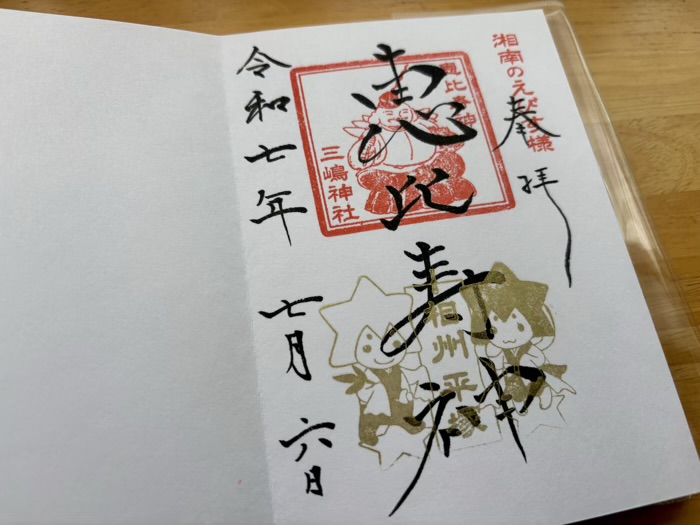 湘南のえびす様
奉拝
恵比寿神
恵比寿神
三嶋神社
相州 平塚
令和七年 七月 六日